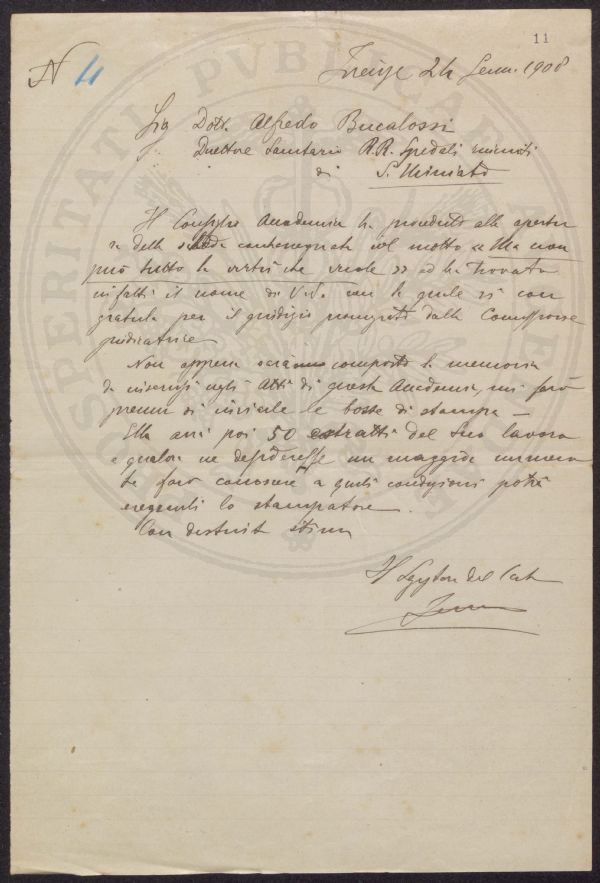 11
N 4
Firenze 24 Genn. 1908
Sig Dott. Alfredo Bucalossi
Direttore Sanitario R.R. Spedali riuniti
di S. Miniato
Il Consiglio Accademico ha proceduto alla apertu
ra della scheda contrassegnata col motto « Ma non
può tutto la virtù che vuole » ed ha trovato
infatti il nome di V.S. con la quale si con
gratula per il giudizio pronunziato dalla Commissione
giudicatrice
Non appena sarà composta la memoria
da inserirsi negli Atti di questa Accademia, mi farò
premura di inviarle le bozze di stampa —
Ella avrà poi 50 estratti del Suo lavoro
e qualora ne desiderasse un maggior numero
Le farò conoscere a quali condizioni potrà
eseguirli lo stampatore.
Con distinta stima
Il
PROSPERITATI PVBLICAE